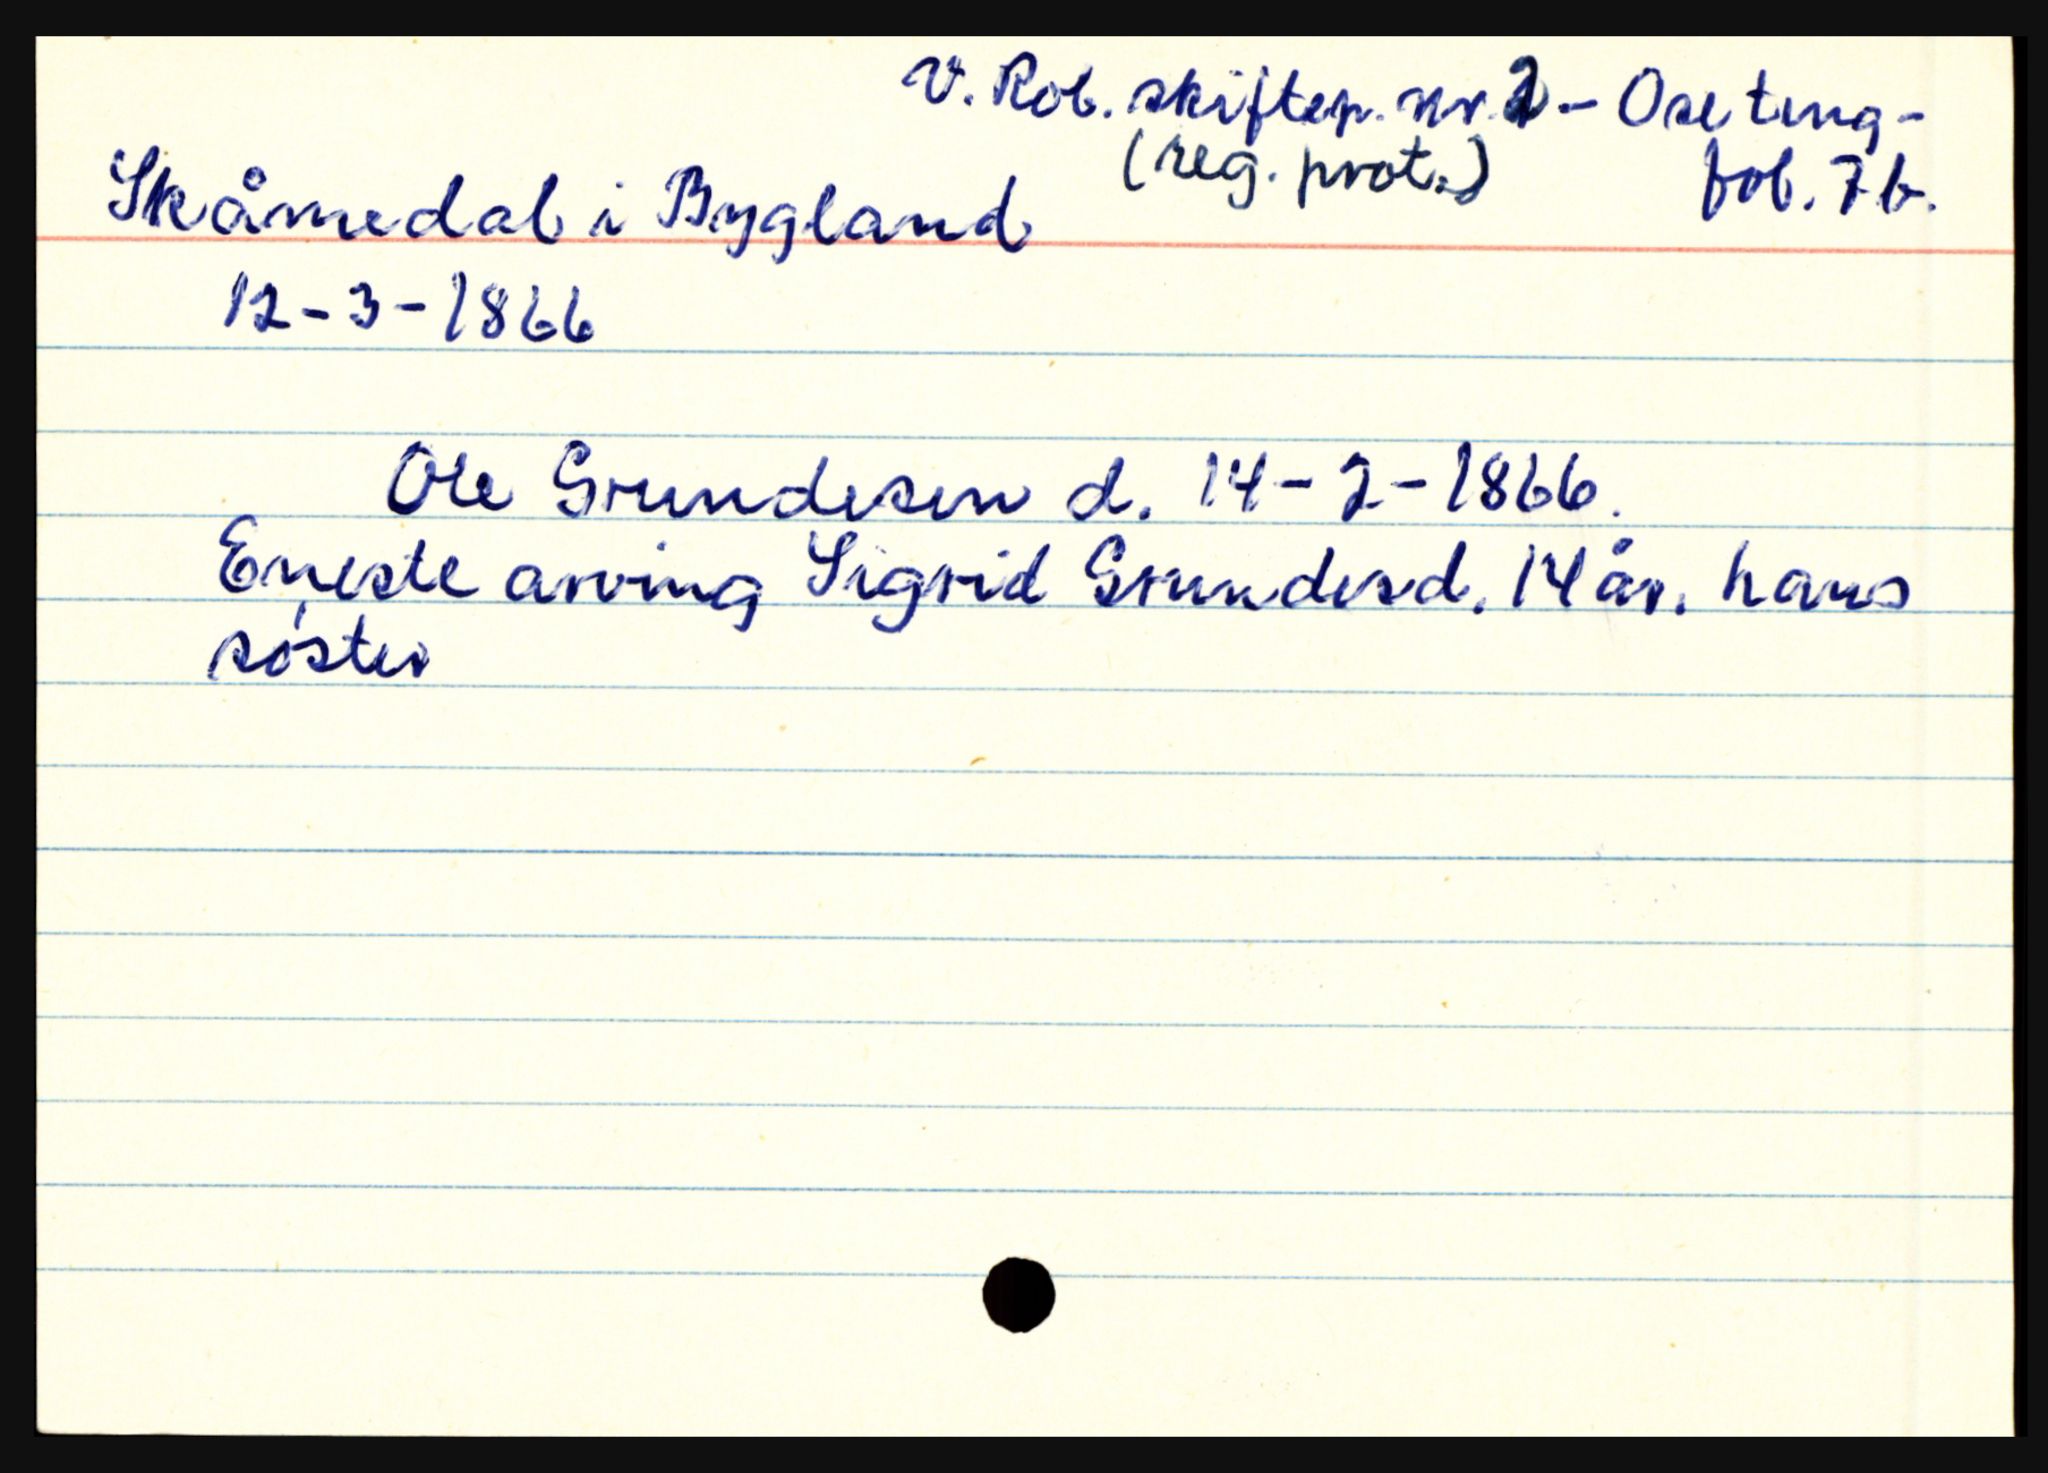 V. Rob. skiftep. nr. 2 - Ose ting-
(reg. prot.) fol. 7b.
Skåmedal i Bygland
12-3-1866
Ole Grundesen d. 14-2-1866.
Eneste arving Sigrid Grundesd. 14 år. hans
søster